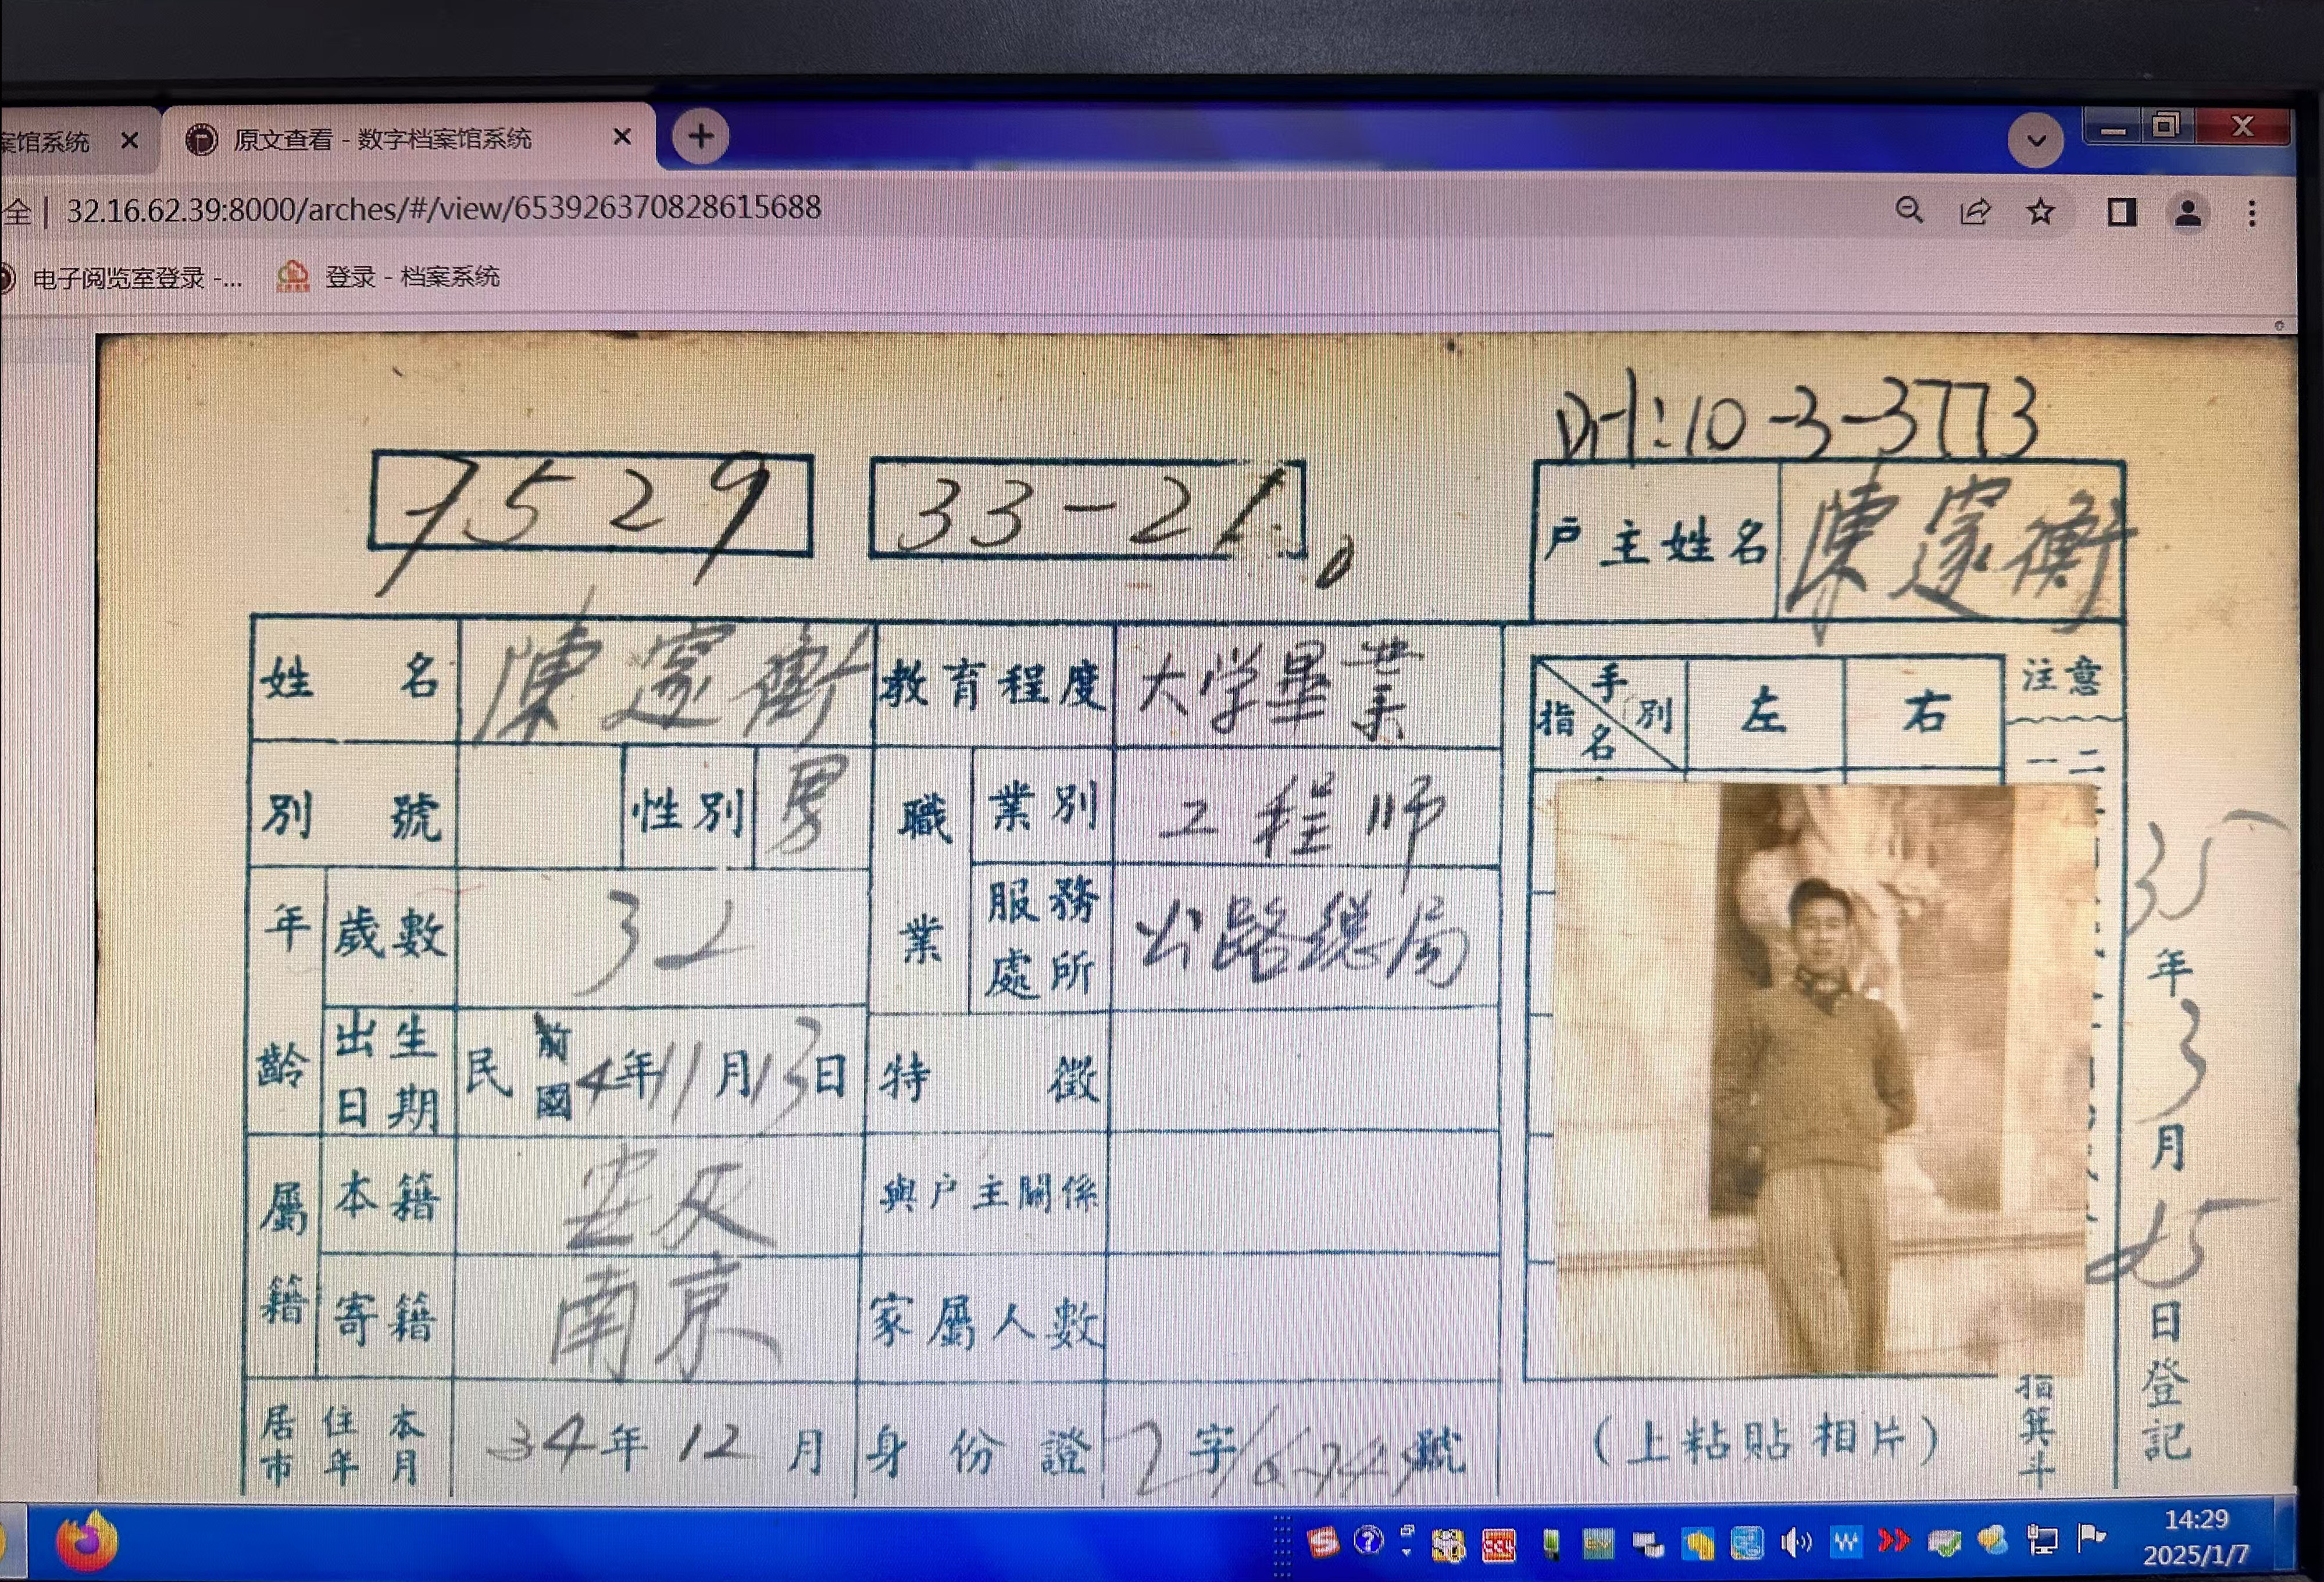 案馆系统
原文查看 - 数字档案馆系统
全 | 32.16.62.39:8000/arches/#/view/653926370828615688
电子阅览室登录 -...
登录 - 档案系统
10-3-3773
7529
33-21
户主姓名 陳 衡
姓名 陳 衡
教育程度 大学畢業
手別 指名 左 右
注意
一 二
別號
性別 男
職業 業別 工程师
服務處所 公路總局
年齡 歲數 32
出生日期 民前國4年11月13日
特徵
屬籍 本籍 安庆
與户主關係
寄籍 南京
家屬人數
居住本市年月 34年12月
身份證 字 號
(上粘貼相片)
指箕斗
35年3月25日登記
14:29
2025/1/7